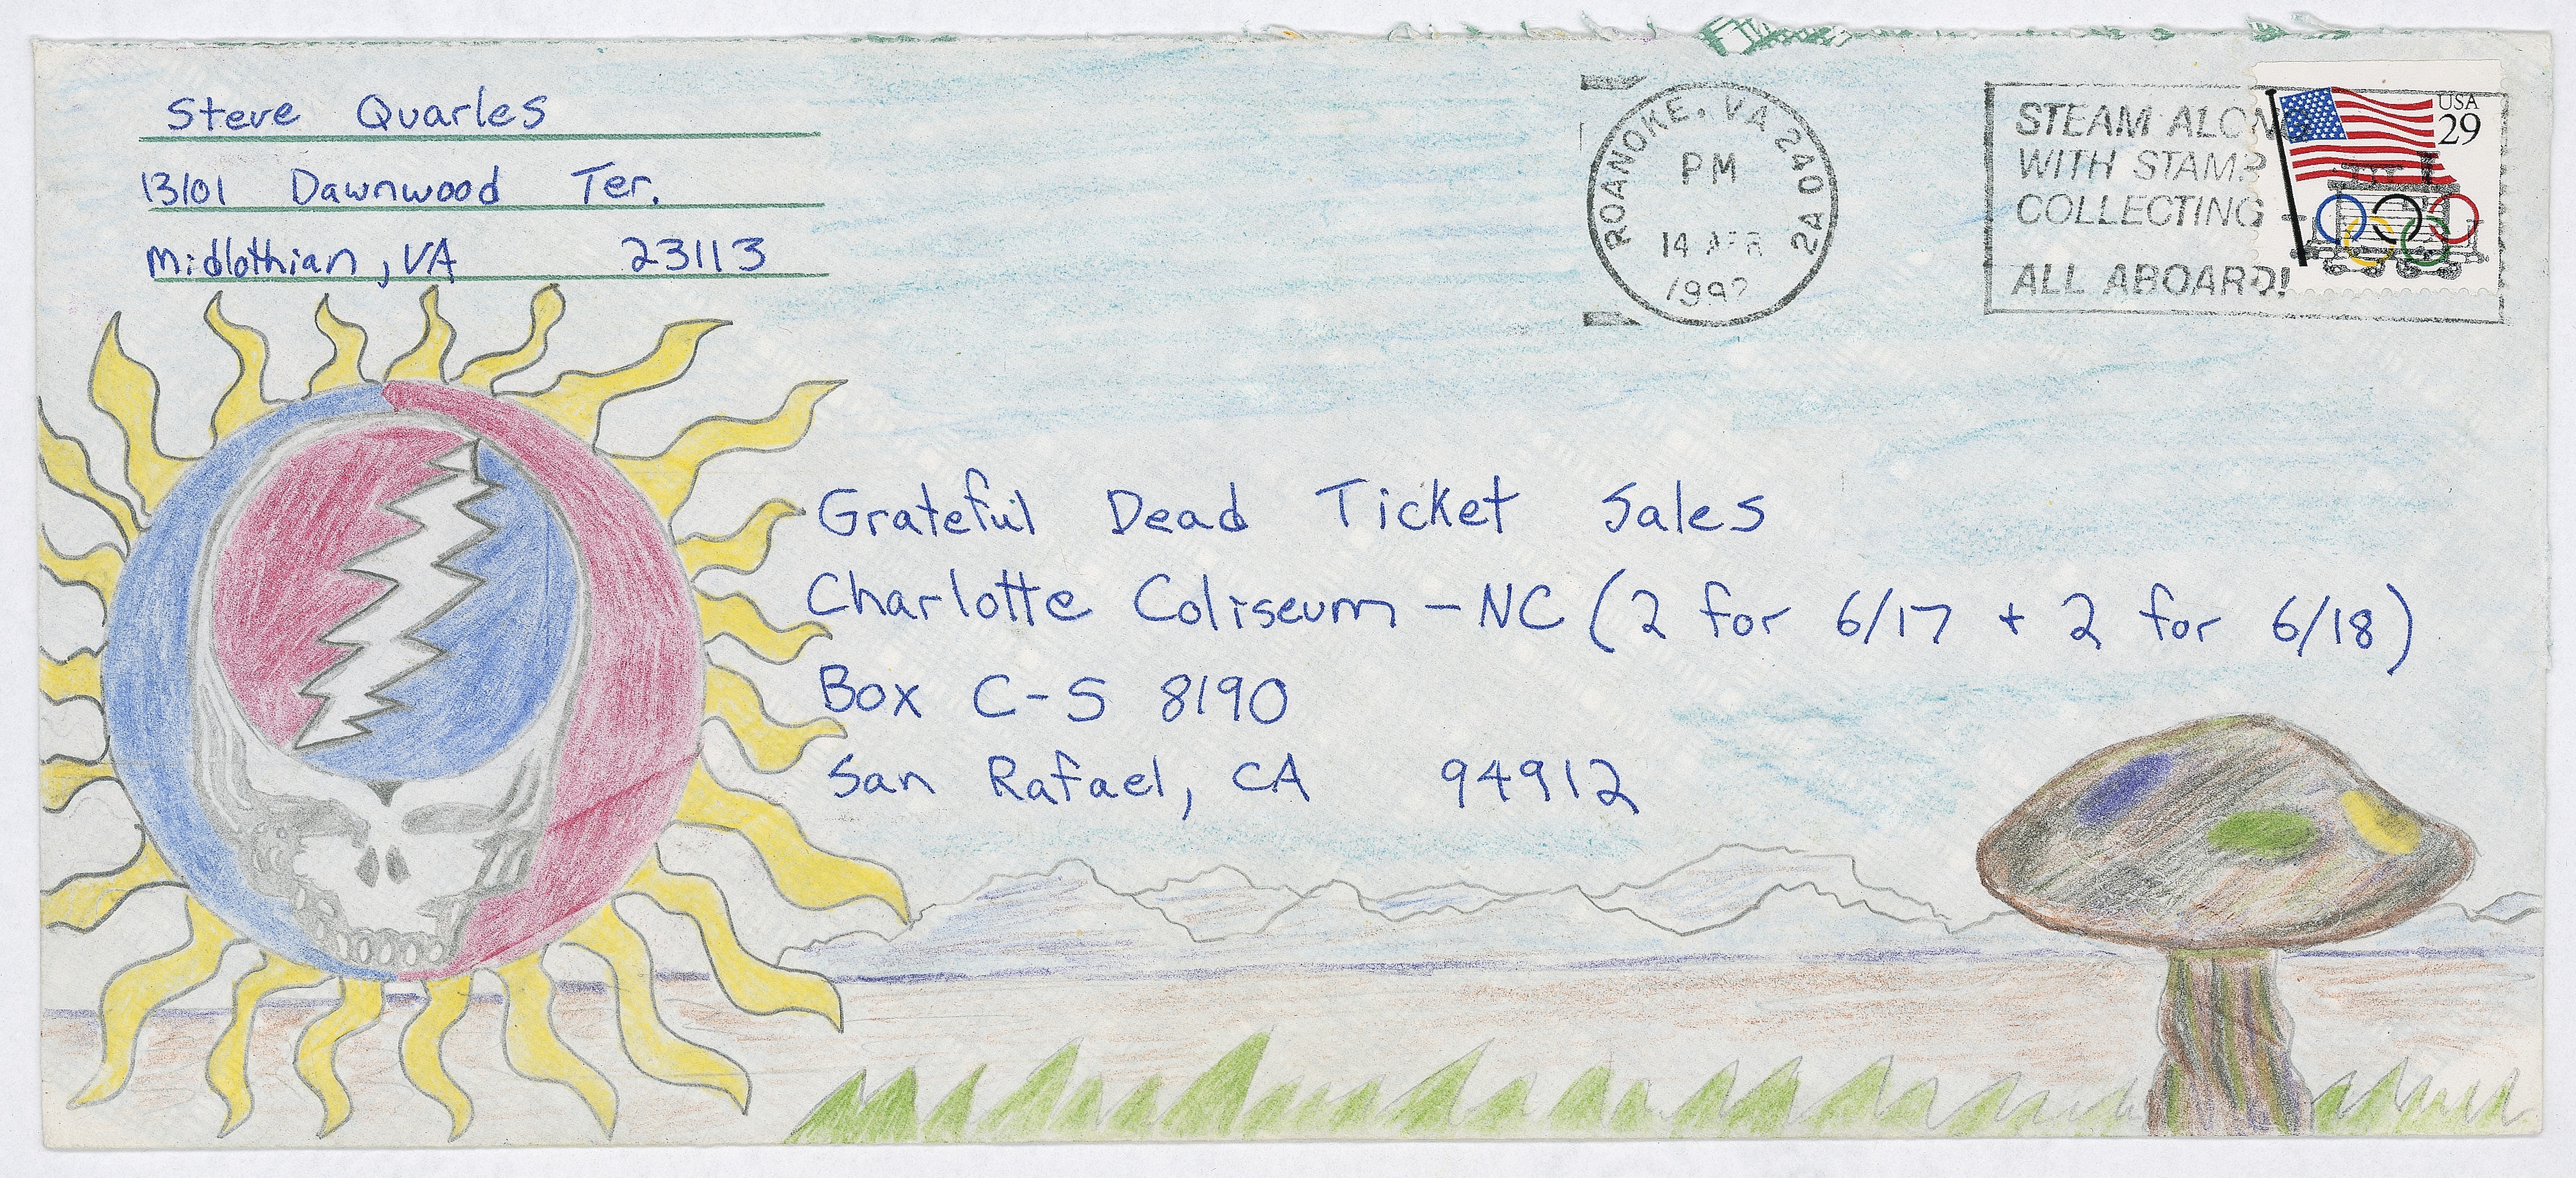 Steve Quarles
13101 Dawnwood Ter.
Midlothian, VA 23113
ROANOKE, VA 240
PM
14 APR
1992
2A
STEAM ALONG
WITH STAMP
COLLECTING
ALL ABOARD!
USA
29
Grateful Dead Ticket Sales
Charlotte Coliseum - NC (2 for 6/17 + 2 for 6/18)
Box C-S 8190
San Rafael, CA 94912